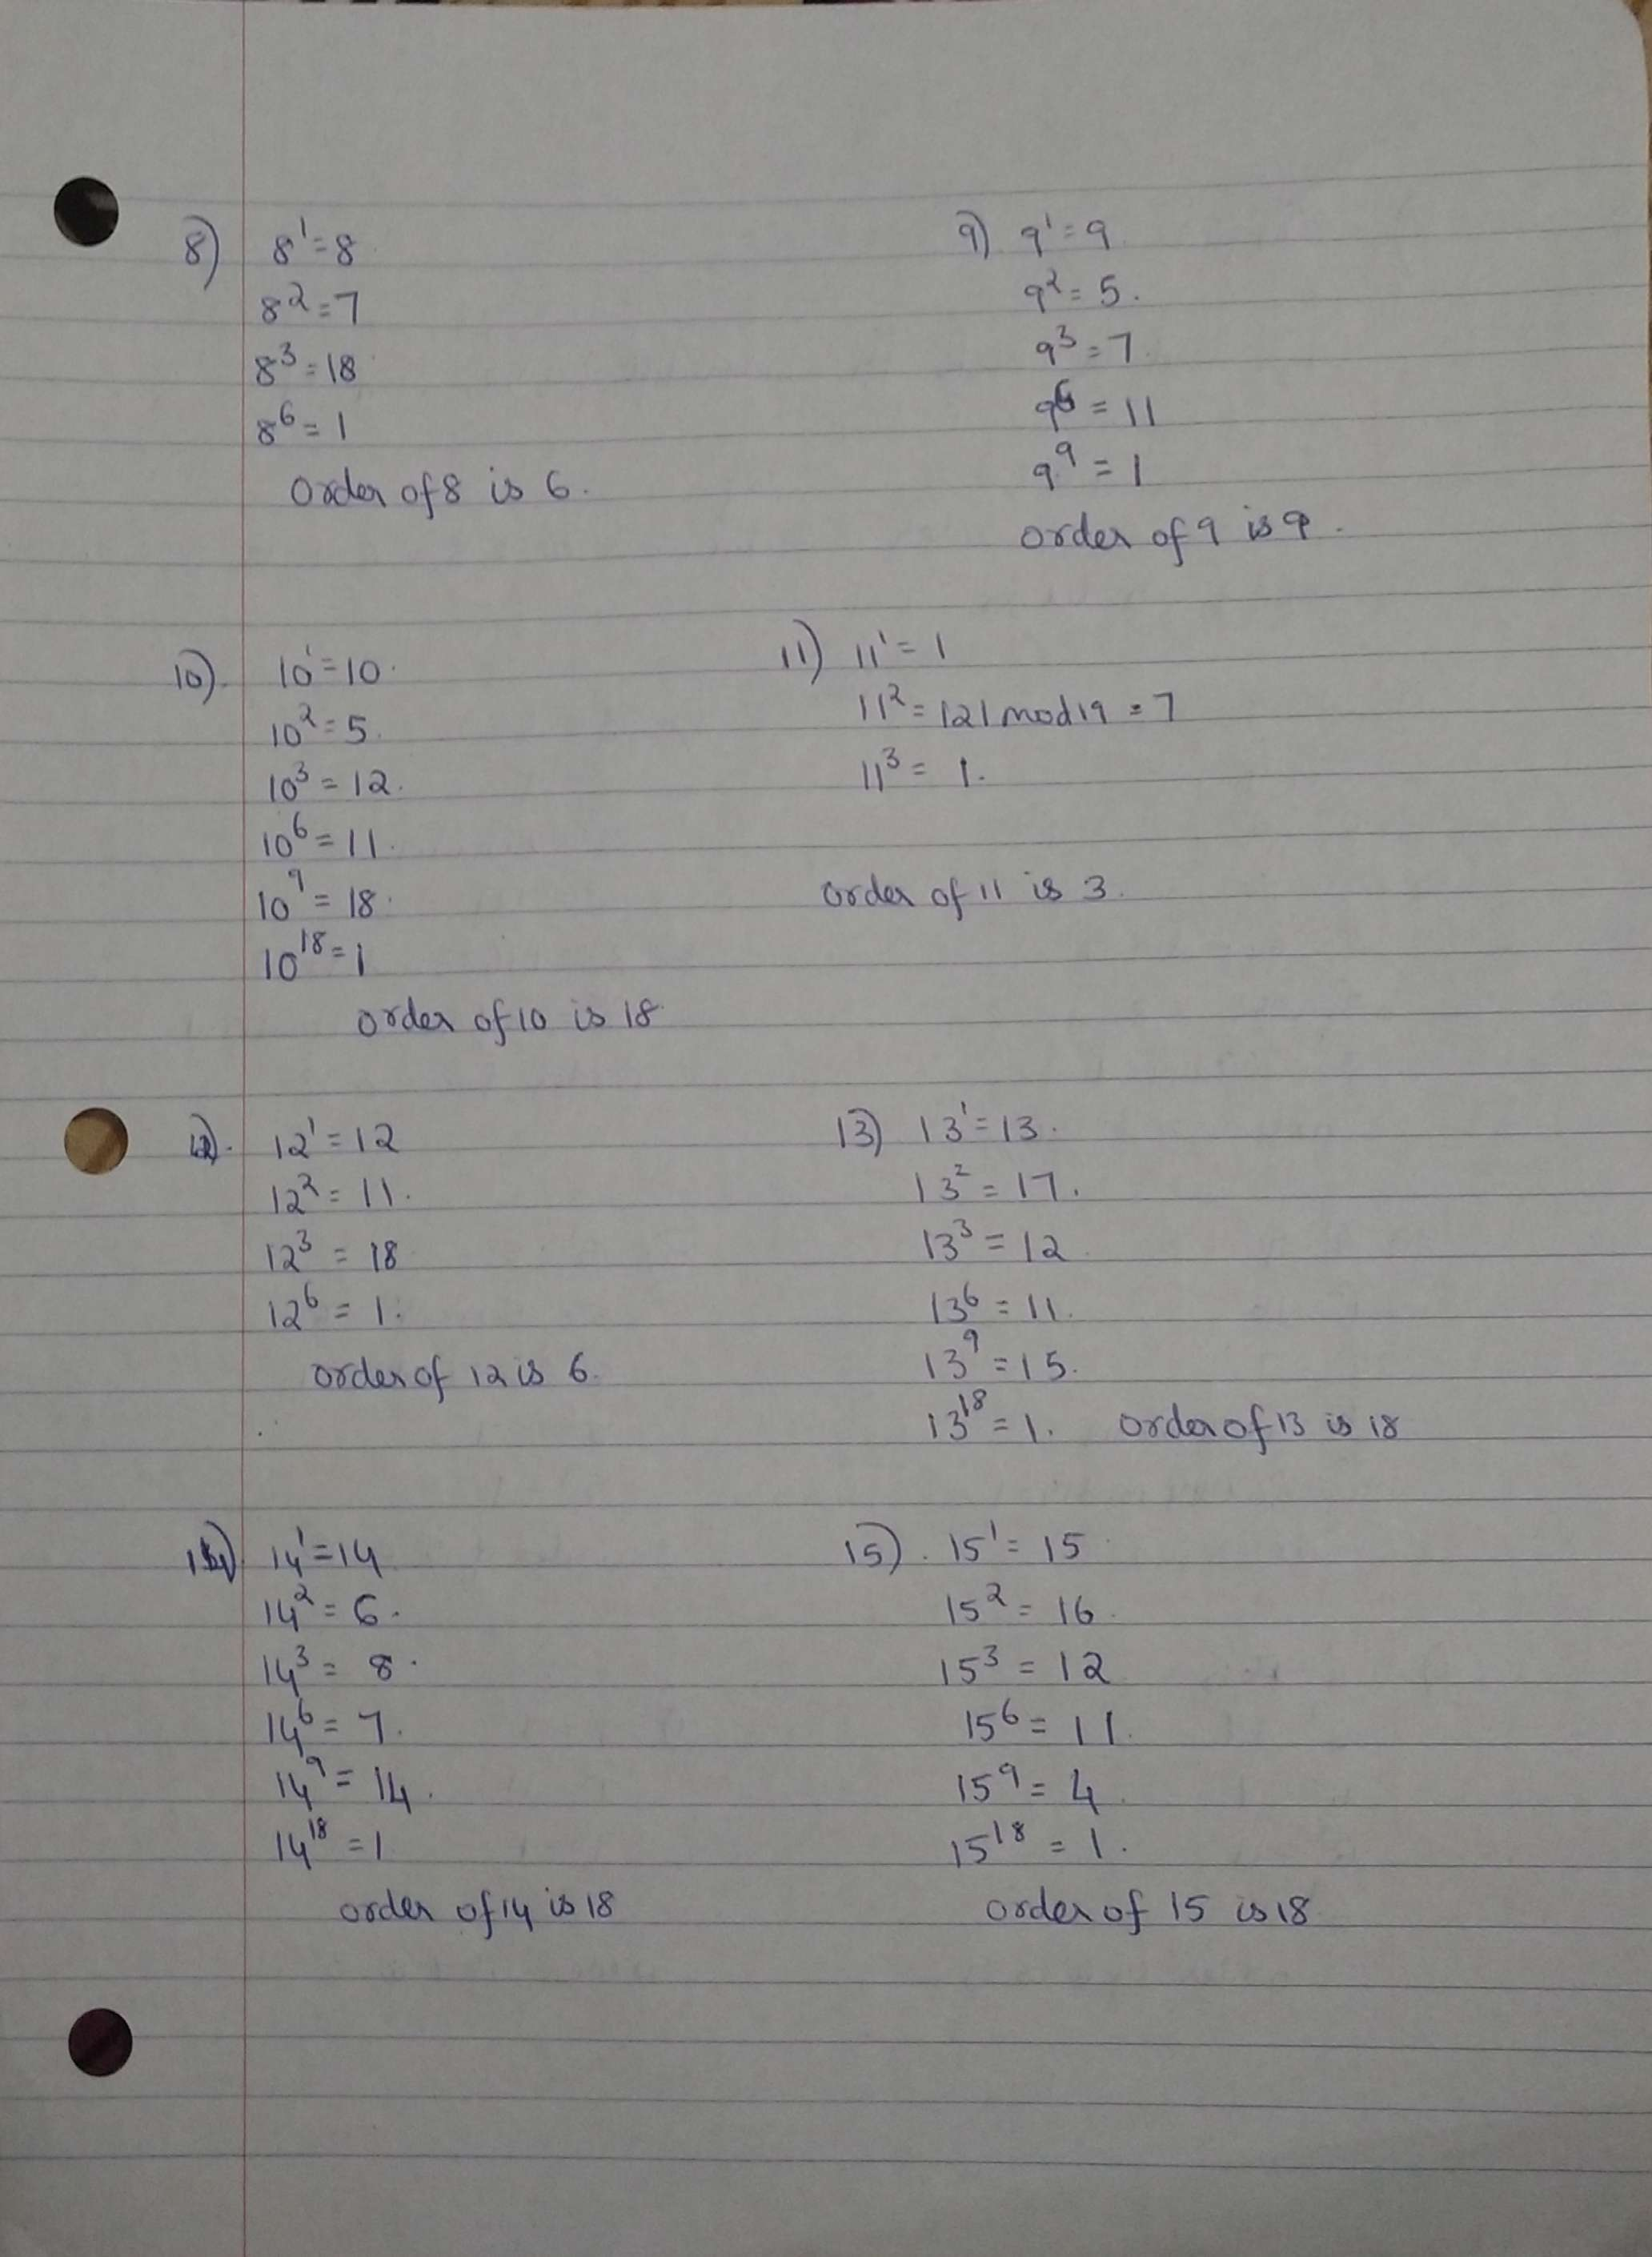 8) 8¹=8
8²=7
8³=18
8⁶=1
Order of 8 is 6.
9) 9¹=9
9²=5.
9³=7.
9⁶=11
9⁹=1
order of 9 is 9.
10). 10¹=10.
10²=5.
10³=12.
10⁶=11.
10⁹=18.
10¹⁸=1
order of 10 is 18.
11) 11¹=1
11²=121 mod 19=7
11³=1.
order of 11 is 3.
12). 12¹=12
12²=11.
12³=18
12⁶=1.
order of 12 is 6.
13) 13¹=13.
13²=17.
13³=12
13⁶=11.
13⁹=15.
13¹⁸=1. order of 13 is 18
14) 14¹=14
14²=6.
14³=8.
14⁶=7.
14⁹=14.
14¹⁸=1
order of 14 is 18
15). 15¹=15
15²=16.
15³=12
15⁶=11.
15⁹=4.
15¹⁸=1.
order of 15 is 18